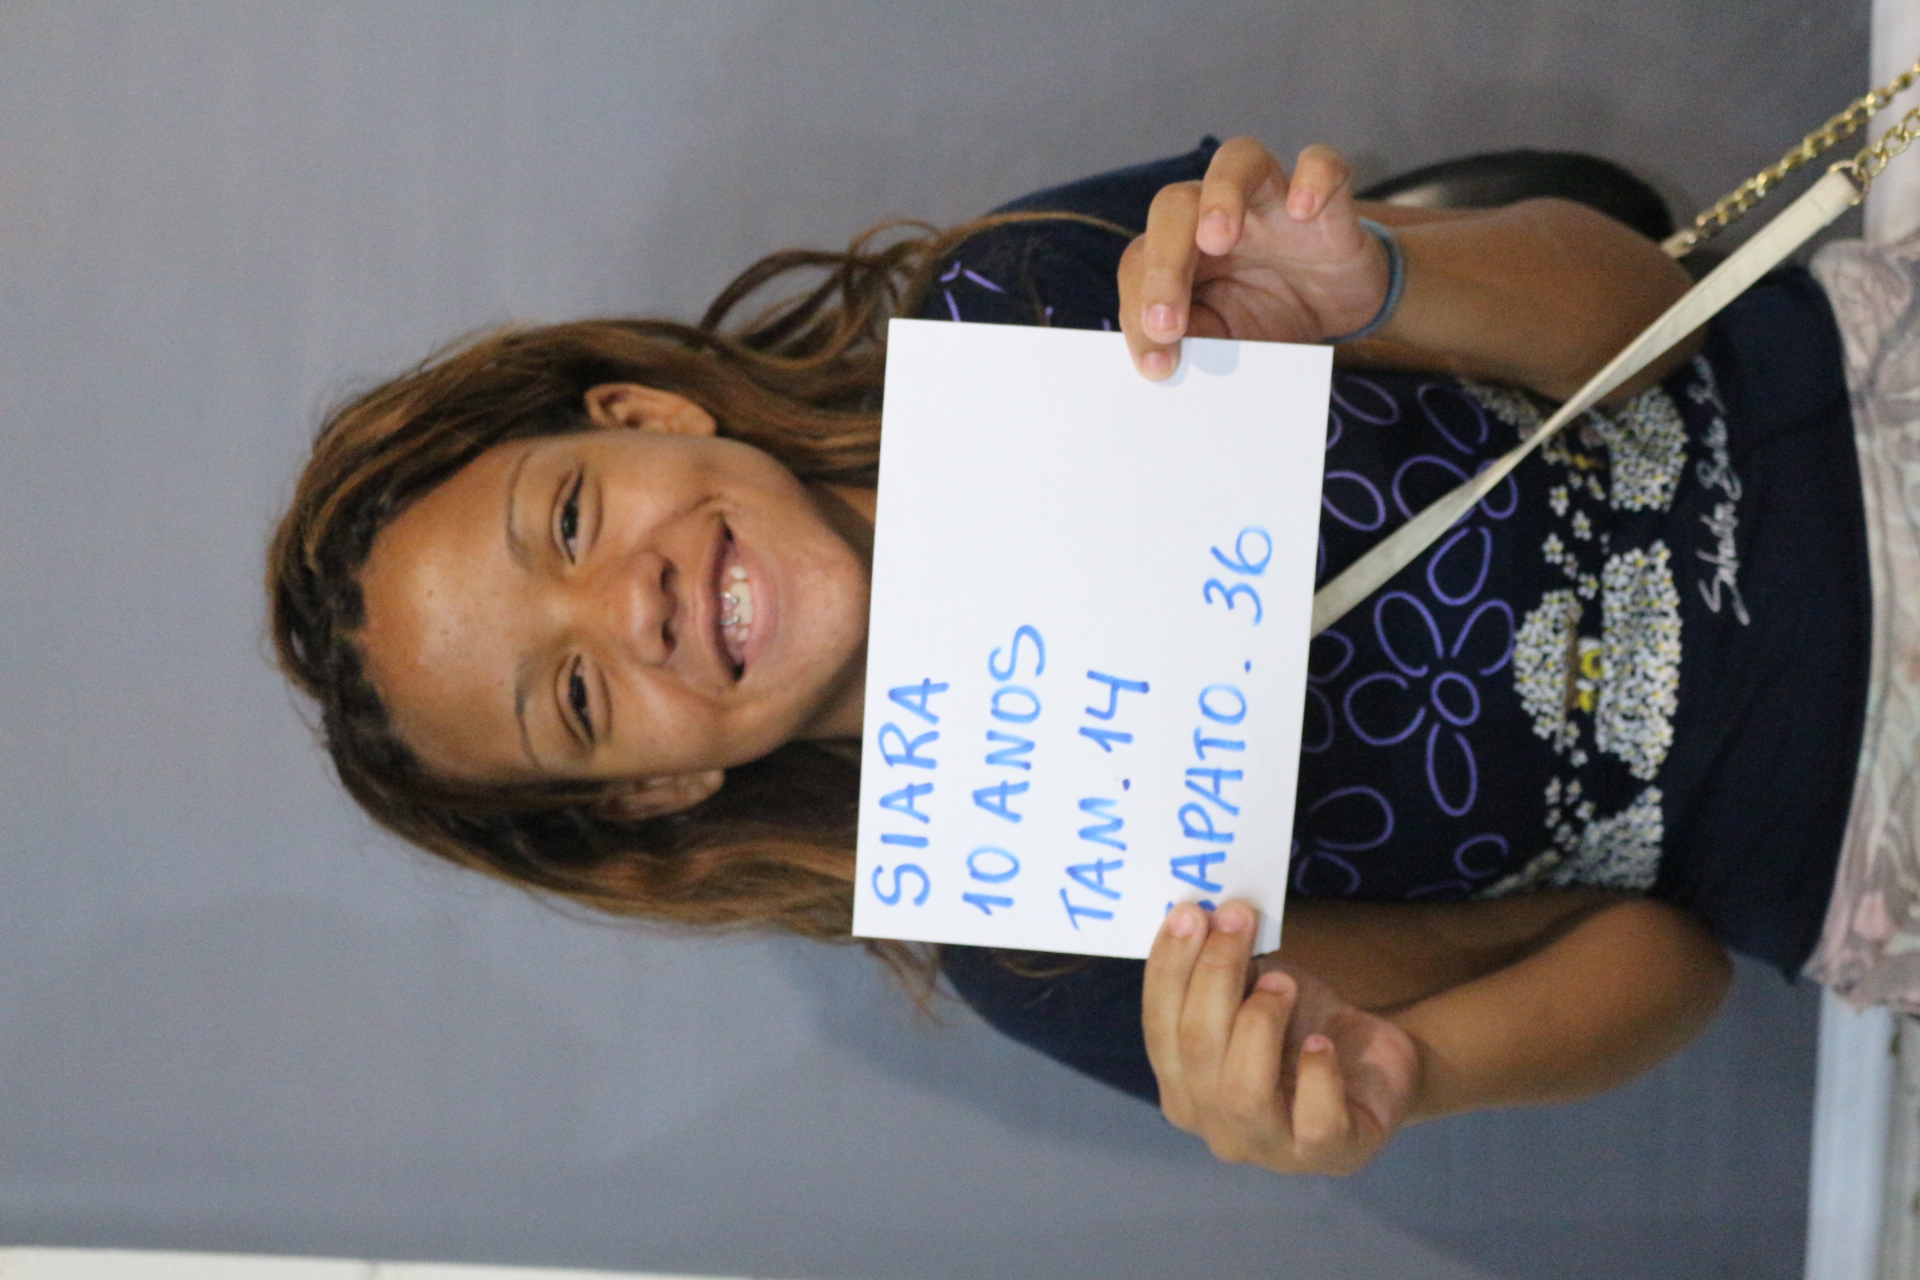 SIARA
10 ANOS
TAM. 14
SAPATO. 36
Salvador Bahia